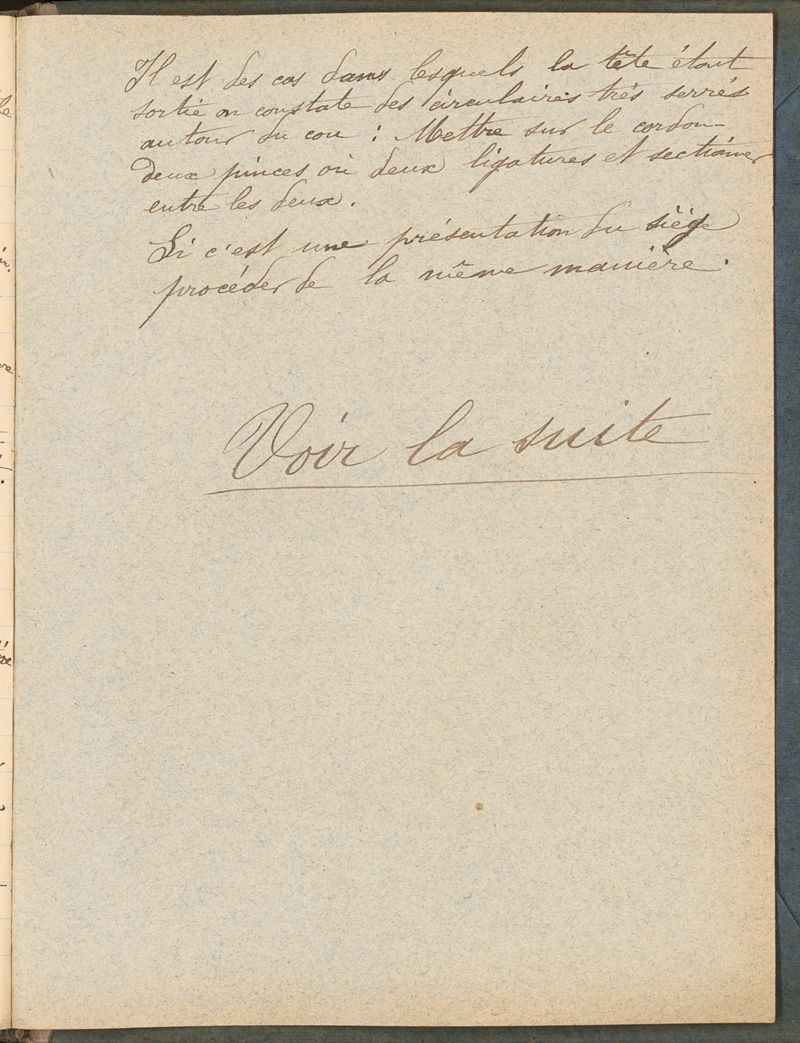 Il est des cas dans lesquels la tête étant
sortie on constate des circulaires très serrés
autour du cou : Mettre sur le cordon
deux pinces ou deux ligatures et sectionner
entre les deux.
Si c'est une présentation du siège
procéder de la même manière.
Voir la suite